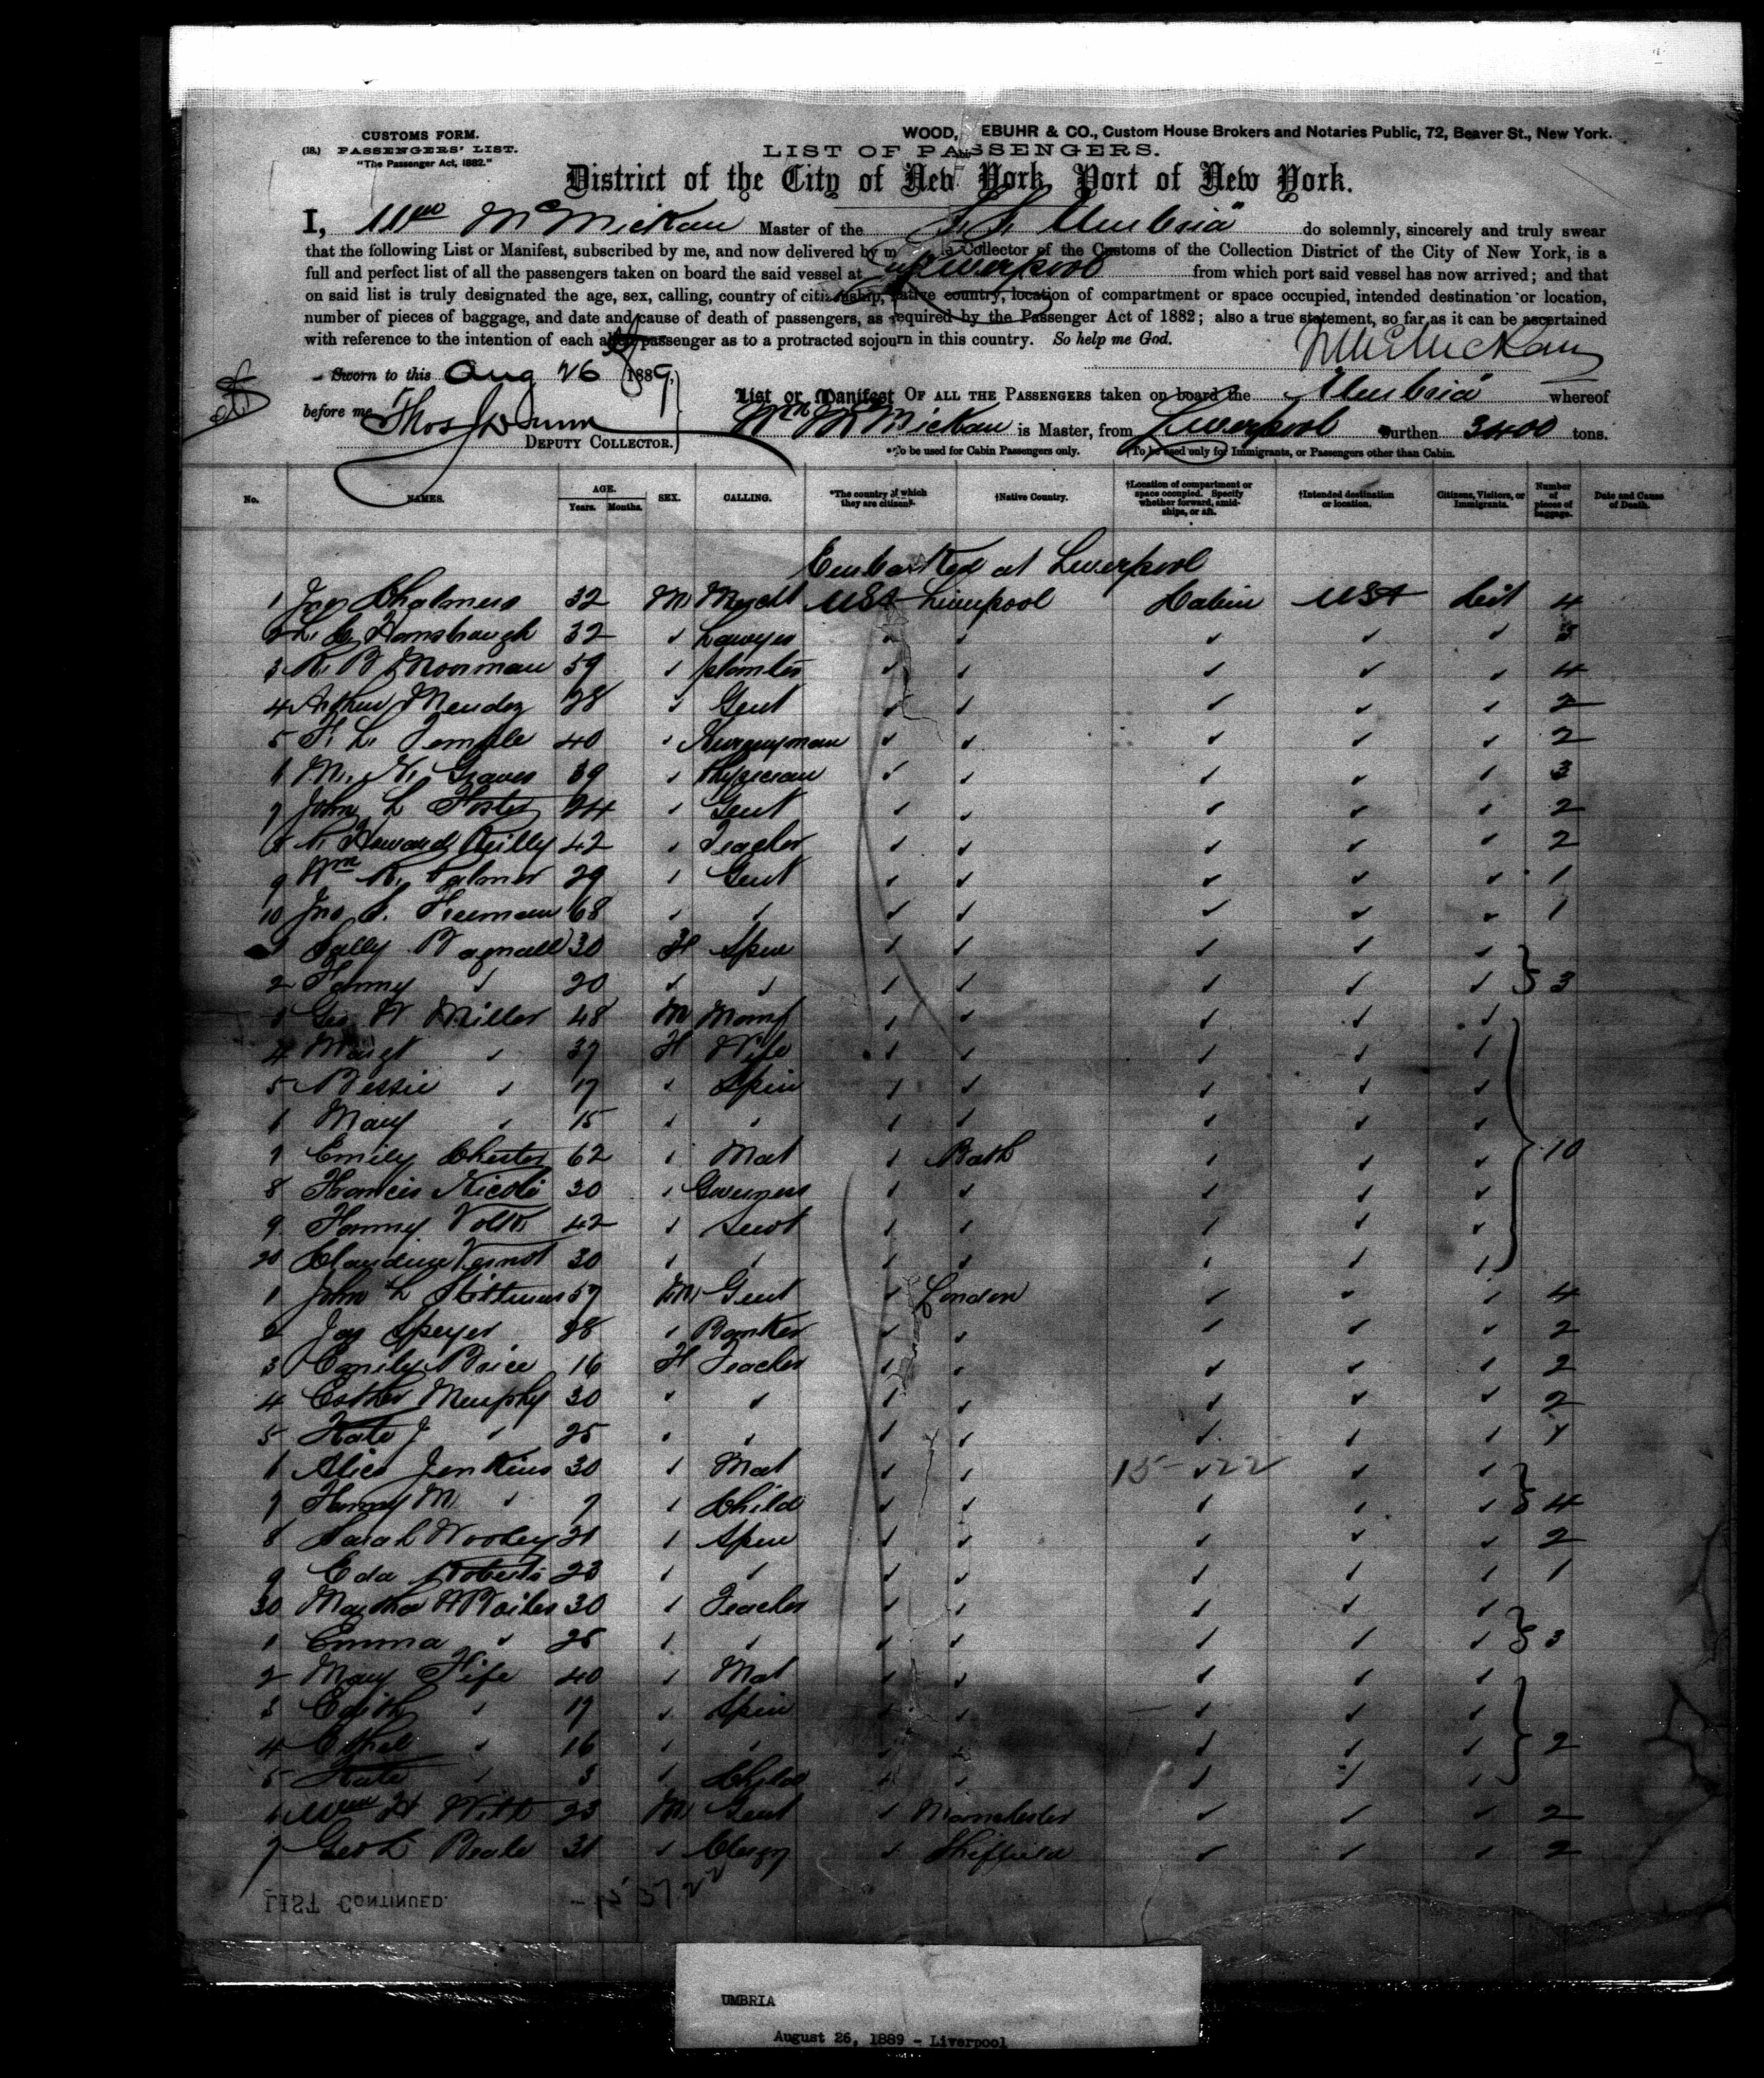 CUSTOMS FORM.
(18.) PASSENGERS' LIST.
"The Passenger Act, 1882."
WOOD, EBUHR & CO., Custom House Brokers and Notaries Public, 72, Beaver St., New York.
LIST OF PASSENGERS.
District of the City of New York, Port of New York.
I, Wm McMickan Master of the S.S. "Umbria" do solemnly, sincerely and truly swear
that the following List or Manifest, subscribed by me, and now delivered by m Collector of the Customs of the Collection District of the City of New York, is a
full and perfect list of all the passengers taken on board the said vessel at Liverpool from which port said vessel has now arrived; and that
on said list is truly designated the age, sex, calling, country of citizenship, native country, location of compartment or space occupied, intended destination or location,
number of pieces of baggage, and date and cause of death of passengers, as required by the Passenger Act of 1882; also a true statement, so far as it can be ascertained
with reference to the intention of each alien passenger as to a protracted sojourn in this country. So help me God.
W McMickan
Sworn to this Aug 26 1889,
before me Thos J Dunn
DEPUTY COLLECTOR.
List or Manifest OF ALL THE PASSENGERS taken on board the "Umbria" whereof
Wm McMickan is Master, from Liverpool Burthen 3400 tons.
*To be used for Cabin Passengers only. †To be used only for Immigrants, or Passengers other than Cabin.
No. NAMES. AGE. Years. Months. SEX. CALLING. *The country of which they are citizens. †Native Country. †Location of compartment or space occupied. Specify whether forward, amidships, or aft. †Intended destination or location. Citizens, Visitors, or Immigrants. Number of pieces of baggage. Date and Cause of Death.
Embarked at Liverpool
1 Jas Chalmers 32 M Mercht USA Liverpool Cabin USA Cit 4
2 L. C. Hansbrough 32 ✓ Lawyer ✓ ✓ ✓ ✓ ✓ 3
3 R. B. Moorman 59 ✓ planter ✓ ✓ ✓ ✓ ✓ 4
4 Arthur Mendez 28 ✓ Gent ✓ ✓ ✓ ✓ ✓ 2
5 F. L. Temple 40 ✓ ✓ ✓ ✓ ✓ ✓ 2
6 M. N. Graves 39 ✓ Physician ✓ ✓ ✓ ✓ ✓ 3
7 John L Foster 24 ✓ Gent ✓ ✓ ✓ ✓ ✓ 2
8 Howard Reilly 42 ✓ Teacher ✓ ✓ ✓ ✓ ✓ 2
9 Wm R. Palmer 29 ✓ Gent ✓ ✓ ✓ ✓ ✓ 1
10 Jno S. Freeman 68 ✓ ✓ ✓ ✓ ✓ ✓ ✓ 1
1 Sally Bagnall 30 F Spin ✓ ✓ ✓ ✓ ✓
2 Fanny ✓ 20 ✓ ✓ ✓ ✓ ✓ ✓ ✓ 3
3 Geo W Miller 48 M Manf ✓ ✓ ✓ ✓ ✓
4 Margt ✓ 37 F Wife ✓ ✓ ✓ ✓ ✓
5 Bessie ✓ 17 ✓ Spin ✓ ✓ ✓ ✓ ✓
6 Mary ✓ 15 ✓ ✓ ✓ ✓ ✓ ✓ ✓
7 Emily Chester 62 ✓ Mat ✓ Bath ✓ ✓ ✓ 10
8 Francis Nicole 30 ✓ Governess ✓ ✓ ✓ ✓ ✓
9 Fanny Volk 42 ✓ Servt ✓ ✓ ✓ ✓ ✓
20 Claudine Vernot 30 ✓ ✓ ✓ ✓ ✓ ✓ ✓
1 John L 59 M Gent ✓ London ✓ ✓ ✓ 4
2 Jas Speyer 28 ✓ Banker ✓ ✓ ✓ ✓ ✓ 2
3 Emily Brice 16 F Teacher ✓ ✓ ✓ ✓ ✓ 2
4 Esther Murphy 30 ✓ ✓ ✓ ✓ ✓ ✓ ✓ 2
5 Kate J ✓ 25 ✓ ✓ ✓ ✓ ✓ ✓ ✓ 1
6 Alice Jenkins 30 ✓ Mat ✓ ✓ 15 ✓ 22 ✓ ✓
7 Fanny M ✓ 7 ✓ Child ✓ ✓ ✓ ✓ ✓ 4
8 Sarah Wooley 31 ✓ Spin ✓ ✓ ✓ ✓ ✓ 2
9 Eda Roberts 23 ✓ ✓ ✓ ✓ ✓ ✓ ✓ 1
30 Martha 30 ✓ Teacher ✓ ✓ ✓ ✓ ✓
1 Emma ✓ 25 ✓ ✓ ✓ ✓ ✓ ✓ ✓ 3
2 Mary Fife 40 ✓ Mat ✓ ✓ ✓ ✓ ✓
3 Edith ✓ 17 ✓ Spin ✓ ✓ ✓ ✓ ✓
4 Ethel ✓ 16 ✓ ✓ ✓ ✓ ✓ ✓ ✓ 2
5 Kate ✓ 3 ✓ Child ✓ ✓ ✓ ✓ ✓
6 Wm H Witt 23 M Gent ✓ Manchester ✓ ✓ ✓ 2
7 Geo L Beale 31 ✓ Clergy ✓ Sheffield ✓ ✓ ✓ 2
LIST CONTINUED.
UMBRIA
August 26, 1889 - Liverpool